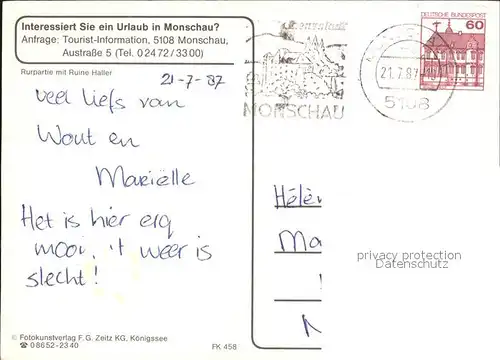 Interessiert Sie ein Urlaub in Monschau?
Anfrage: Tourist-Information, 5108 Monschau,
Austraße 5 (Tel. 0 24 72 / 33 00)
Rurpartie mit Ruine Haller
21-7-87
veel liefs van
Wout en
Mariëlle
Het is hier erg
mooi, 't weer is
slecht!
© Fotokunstverlag F. G. Zeitz KG, Königssee
☎ 0 86 52 - 23 40
FK 458
MONSCHAU
21.7.87
5108
DEUTSCHE BUNDESPOST
60
Hélèn
Ma
privacy protection
Datenschutz